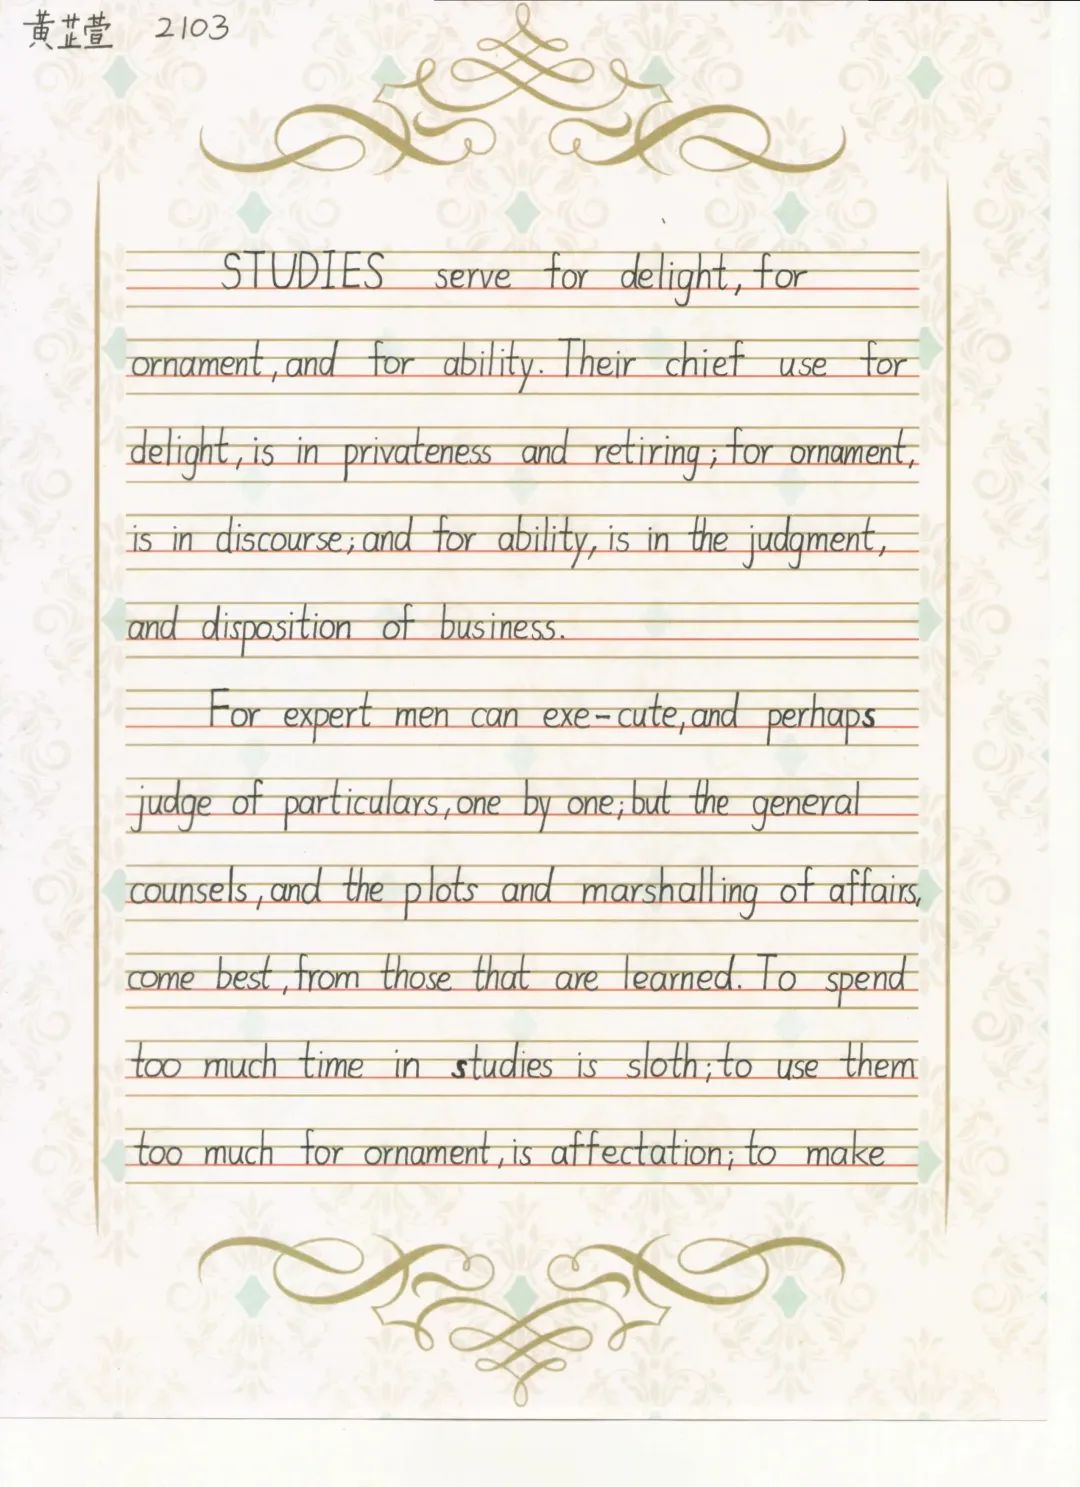 黄芷萱 2103
STUDIES serve for delight, for
ornament, and for ability. Their chief use for
delight, is in privateness and retiring; for ornament,
is in discourse; and for ability, is in the judgment,
and disposition of business.
For expert men can exe-cute, and perhaps
judge of particulars, one by one; but the general
counsels, and the plots and marshalling of affairs,
come best, from those that are learned. To spend
too much time in studies is sloth; to use them
too much for ornament, is affectation; to make